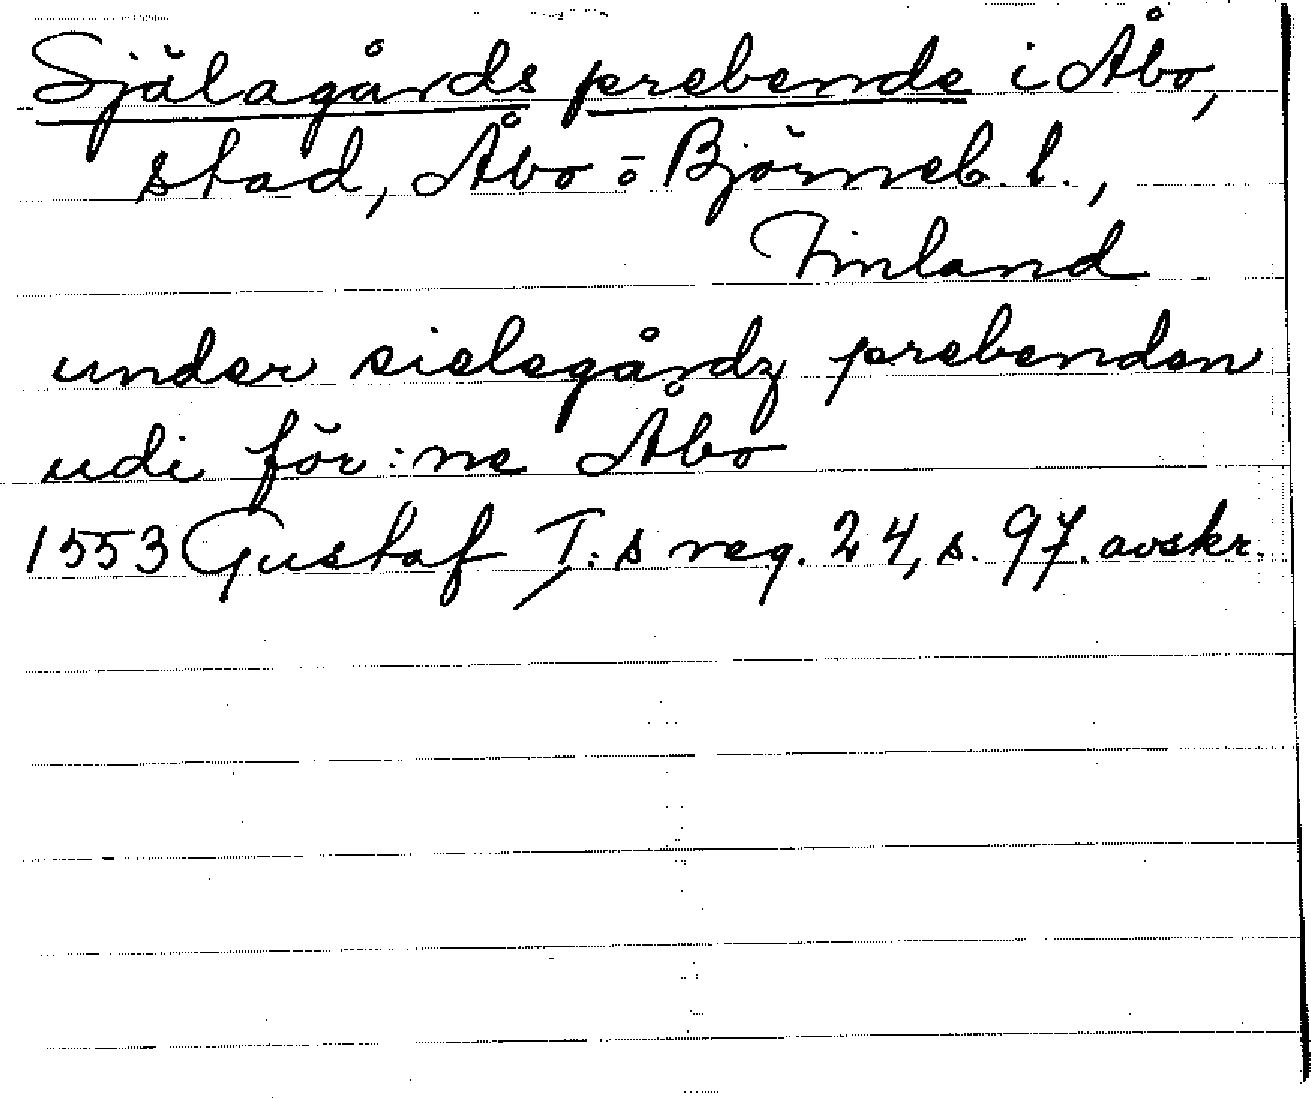 Själagårds prebende i Åbo,
stad, Åbo o Björneb. l.,
Finland
under sielegårdz prebenden
udi för:ne Åbo
1553 Gustaf I:s reg. 24, s. 97. avskr.